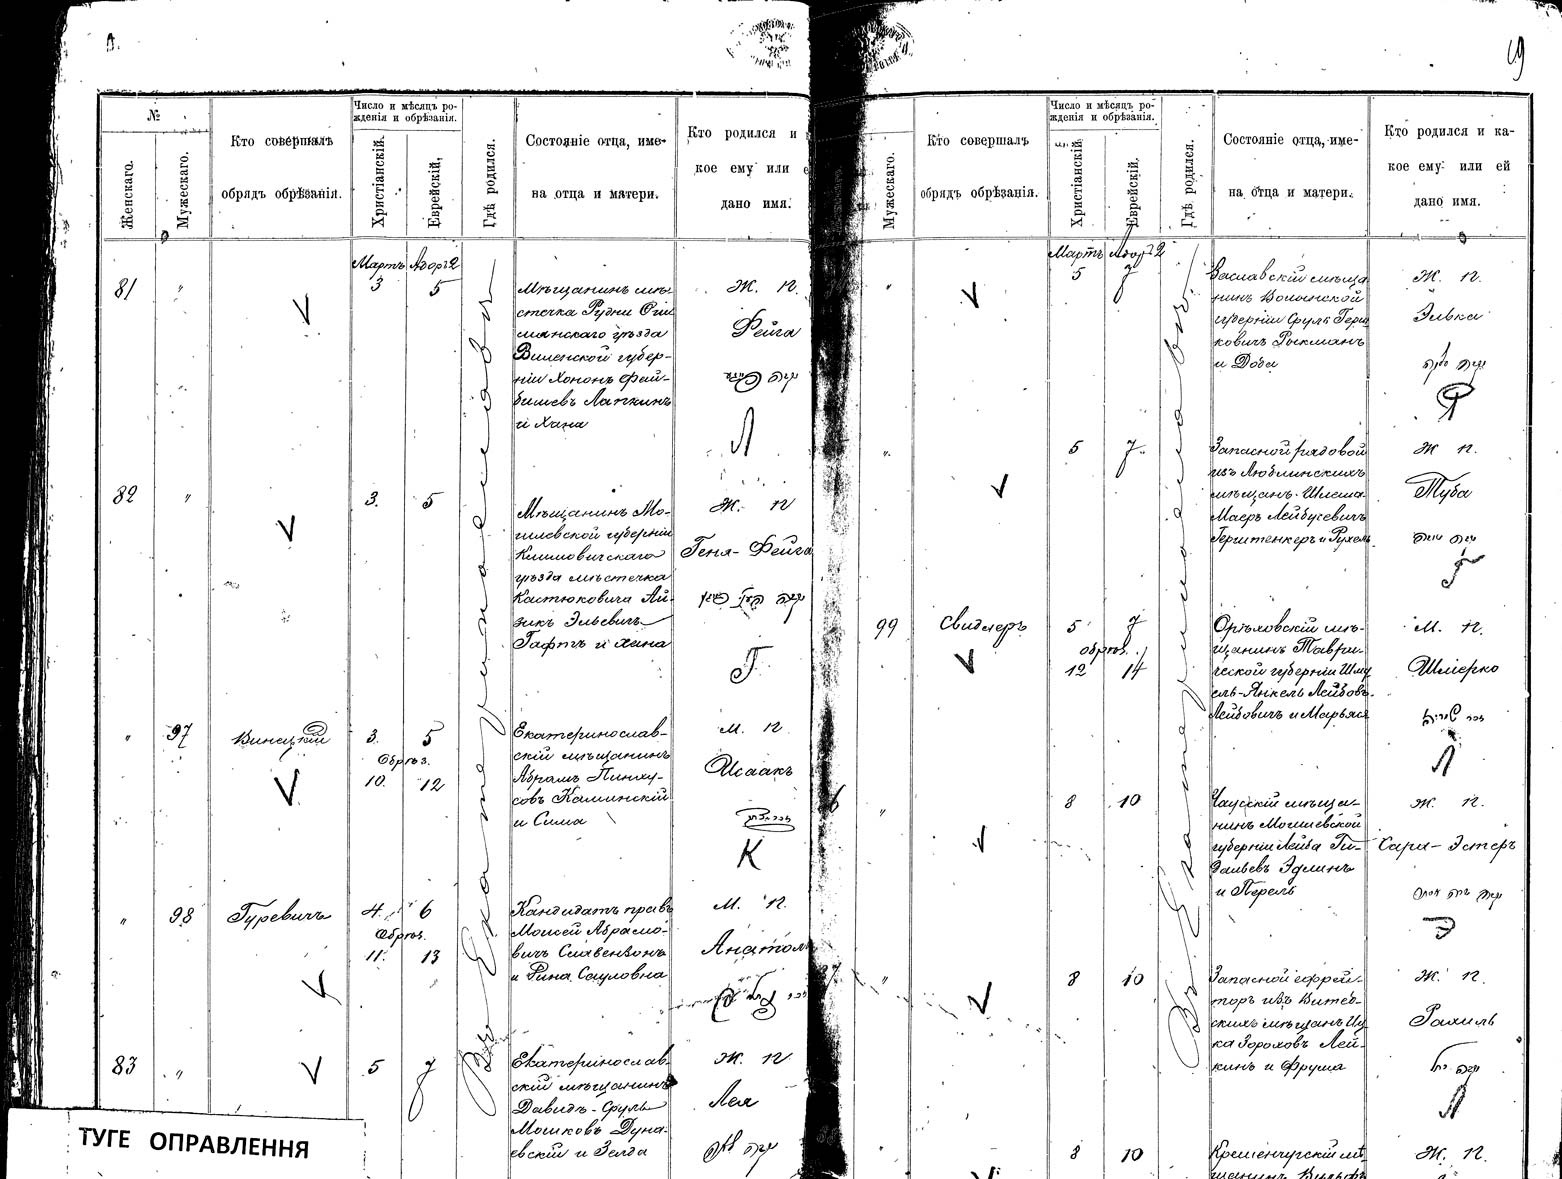 19
№
Женскаго.
Мужескаго.
Кто совершалъ
обрядъ обрѣзанія.
Число и мѣсяцъ ро-
жденія и обрѣзанія.
Христіанскій.
Еврейскій,
Гдѣ родился.
Состояніе отца, име-
на отца и матери.
Кто родился и
кое ему или
дано имя.
Мартъ Адоръ 2
81 " 3 5
Мѣщанинъ мѣ-
стечка Рудни Ош-
мянскаго уѣзда
Виленской губер-
ніи Хононъ Фай-
бишевъ Лапкинъ
и Хана
Ж. п.
Фейга
Л
82 " 3. 5
Мѣщанинъ Мо-
гилевской губерніи
Климовичскаго
уѣзда мѣстечка
Костюковича Ай-
зикъ Эльевичъ
Гафтъ и Хана
Ж. п
Геня-Фейга
Г
" 97 Винецкій 3. 5
Обрѣз.
10. 12
Екатеринослав-
скій мѣщанинъ
Абрамъ Пинху-
совъ Каминскій
и Сима
М. п
Исаакъ
К
" 98 Гуревичъ 4. 6
Обрѣз.
11. 13
Кандидатъ правъ
Моисей Абрамо-
вичъ Славенсонъ
и Рина Сауловна
М. п.
83 " 5 7
Екатеринослав-
скій мѣщанинъ
Давидъ-Сруль
Мошковъ Дуна-
евскій и Зелда
Ж. п
Лея
Въ Екатеринославѣ
ТУГЕ ОПРАВЛЕННЯ
Мужескаго.
Кто совершалъ
обрядъ обрѣзанія.
Число и мѣсяцъ ро-
жденія и обрѣзанія.
Христіанскій
Еврейскій.
Гдѣ родился.
Состояніе отца, име-
на отца и матери.
Кто родился и ка-
кое ему или ей
дано имя.
Мартъ Адоръ 2
" 5 7
Заславскій мѣща-
нинъ Волынской
губерніи Сруль Герш-
ковичъ
и Доба
Ж. п.
Зивка
". 5 7.
Запасной рядовой
изъ Люблинскихъ
мѣщанъ Шлема-
Маеръ Лейбусевичъ
и Рухель
Ж п.
Туба
99 Свидлеръ 5 7
Обрѣз.
12 14
Орѣховскій мѣ-
щанинъ Таври-
ческой губерніи Шму-
ель-Янкель Лейбовъ
Лейбовичъ и Марьяся
М. п.
Шмерко
Л
" 8 10
Чаусскій мѣща-
нинъ Могилевской
губерніи Лейба Ги-
дальевъ Эдлинъ
и Перель
Ж. п.
Сара-Эстеръ
Э
" 8 10
Запасной ефрей-
торъ изъ Витеб-
скихъ мѣщанъ Иц-
ка Зороховъ Лей-
кинъ и Фрума
Ж. п
Рахиль
Л
" 8 10
Кременчугскій мѣ-
Ж. п.
Въ Екатеринославѣ.